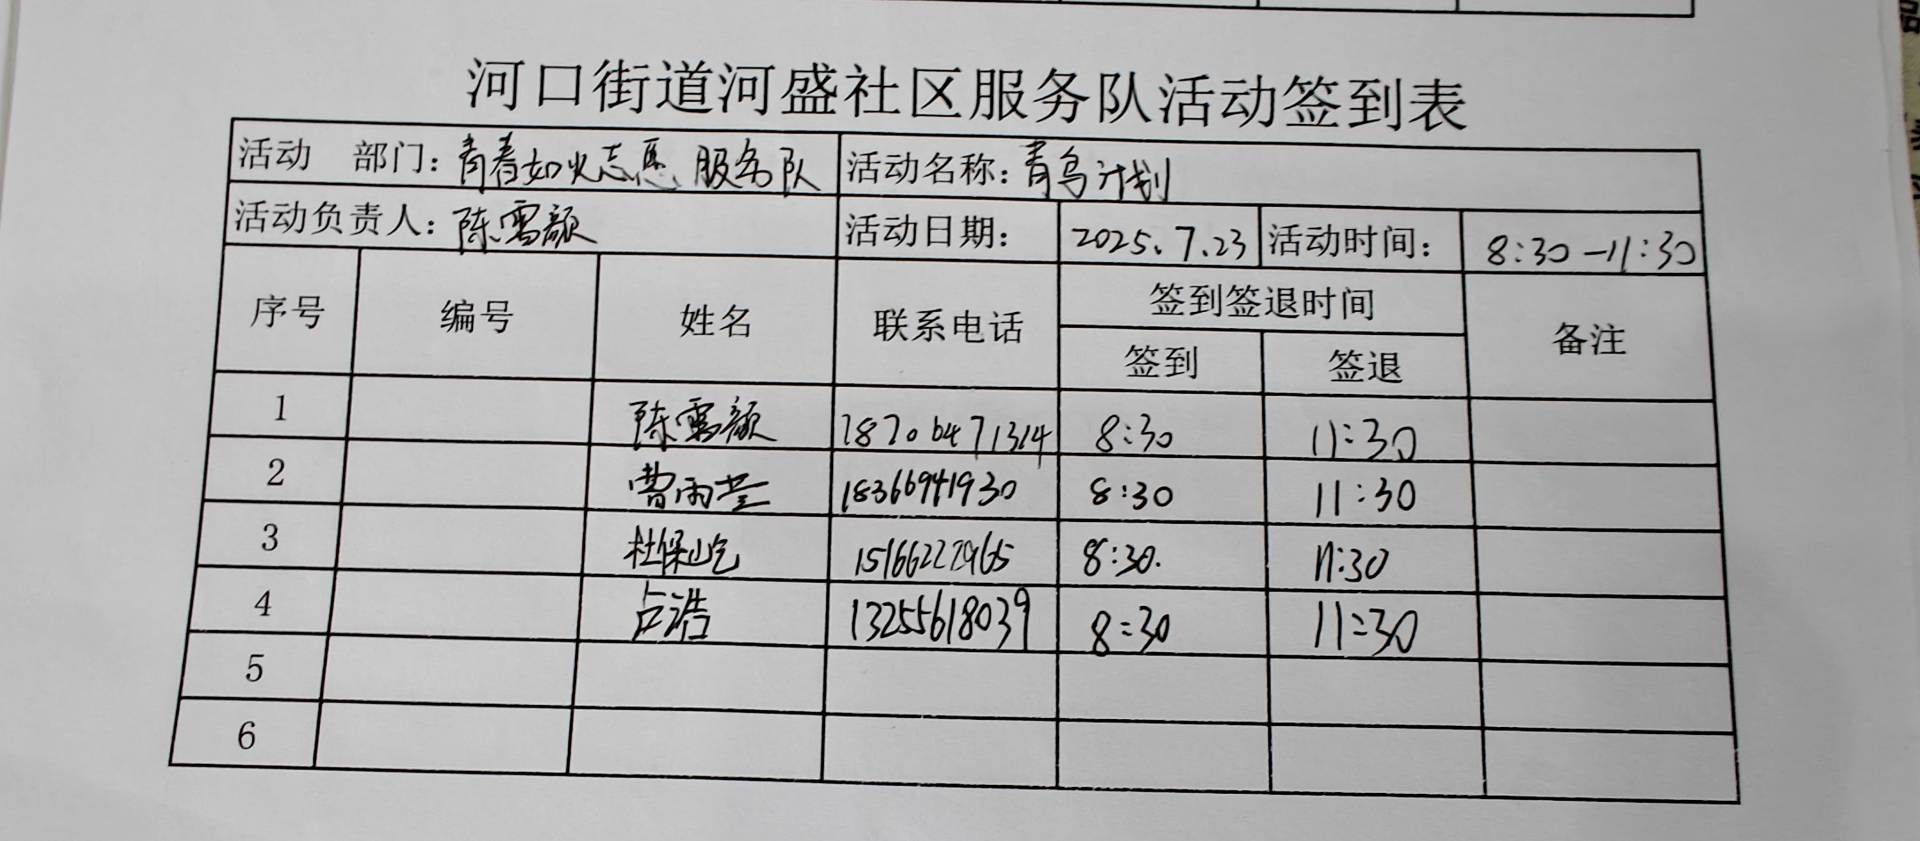 河口街道河盛社区服务队活动签到表
活动 部门：青春如火志愿服务队 活动名称：青鸟计划
活动负责人：陈雪颜 活动日期： 2025.7.23 活动时间： 8:30-11:30
序号 编号 姓名 联系电话 签到签退时间 备注
签到 签退
1 陈雪颜 18706471314 8:30 11:30
2 曹雨莹 18366941930 8:30 11:30
3 杜保屹 15166222965 8:30. 11:30
4 占浩 13255618039 8:30 11:30
5
6